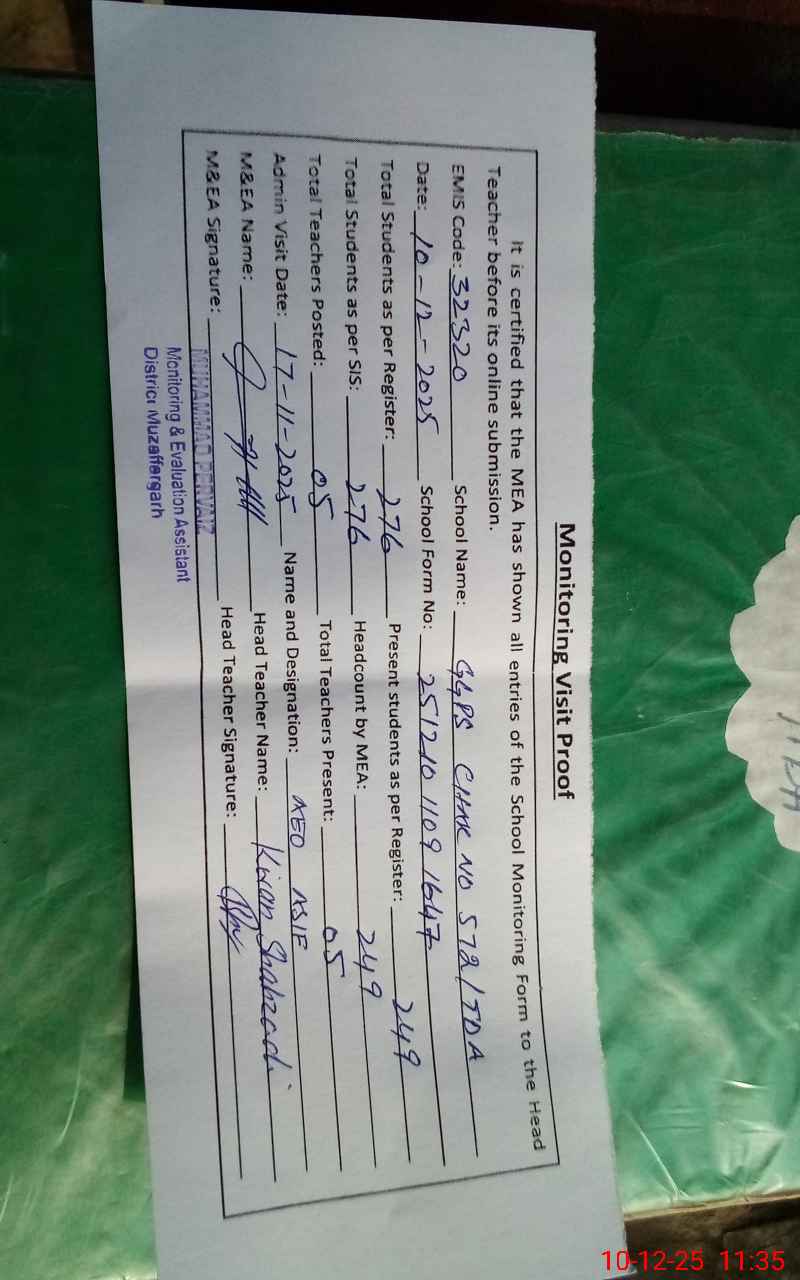 Monitoring Visit Proof
It is certified that the MEA has shown all entries of the School Monitoring Form to the Head
Teacher before its online submission.
EMIS Code: 32320 School Name: GGPS CHAK NO 572/TDA
Date: 10-12-2025 School Form No: 251210 1109 1647
Total Students as per Register: 276 Present students as per Register: 249
Total Students as per SIS: 276 Headcount by MEA: 249
Total Teachers Posted: 05 Total Teachers Present: 05
Admin Visit Date: 17-11-2025 Name and Designation: AEO ASIF
M&EA Name: Head Teacher Name: Kiran Shahzadi
M&EA Signature: Head Teacher Signature:
MUHAMMAD PERVAIZ
Monitoring & Evaluation Assistant
District Muzaffargarh
10-12-25 11:35